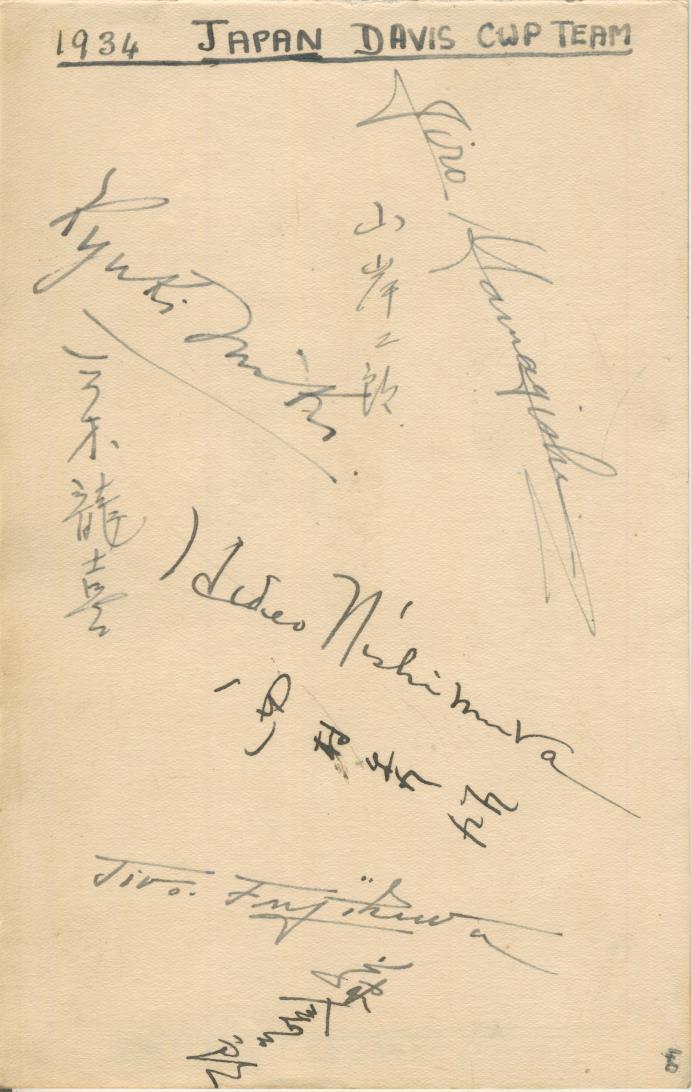 1934 JAPAN DAVIS CUP TEAM
Jiro Yamagishi
山岸二郎
Ryuki Miki
三木龍喜
Hideo Nishimura
西村秀雄
Jiro. Fujikura
藤倉二郎